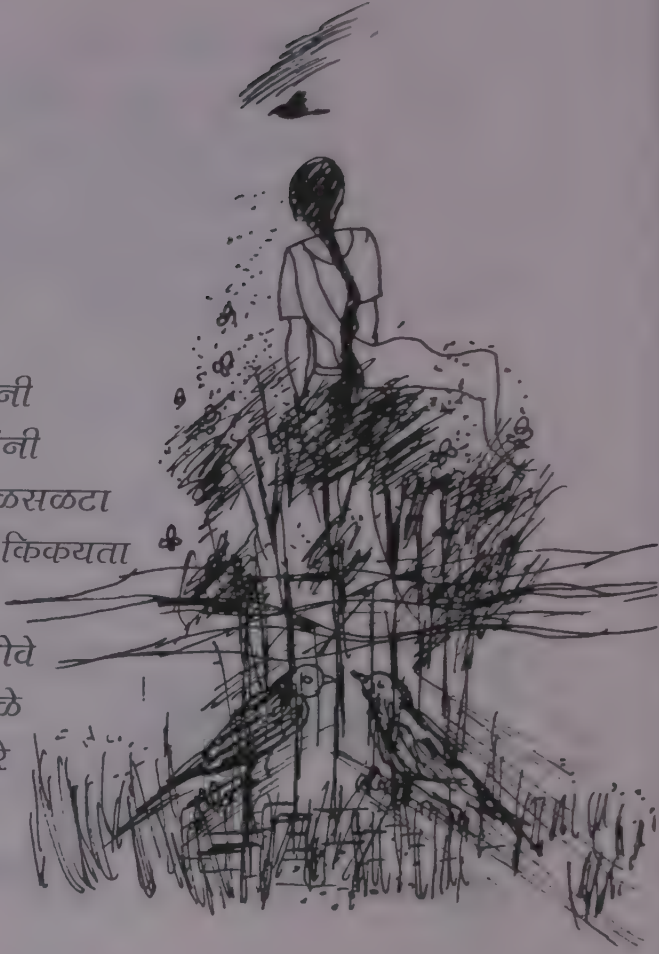 नी
नी
ळसळटा
किकयता
ोवे
ळे
रे